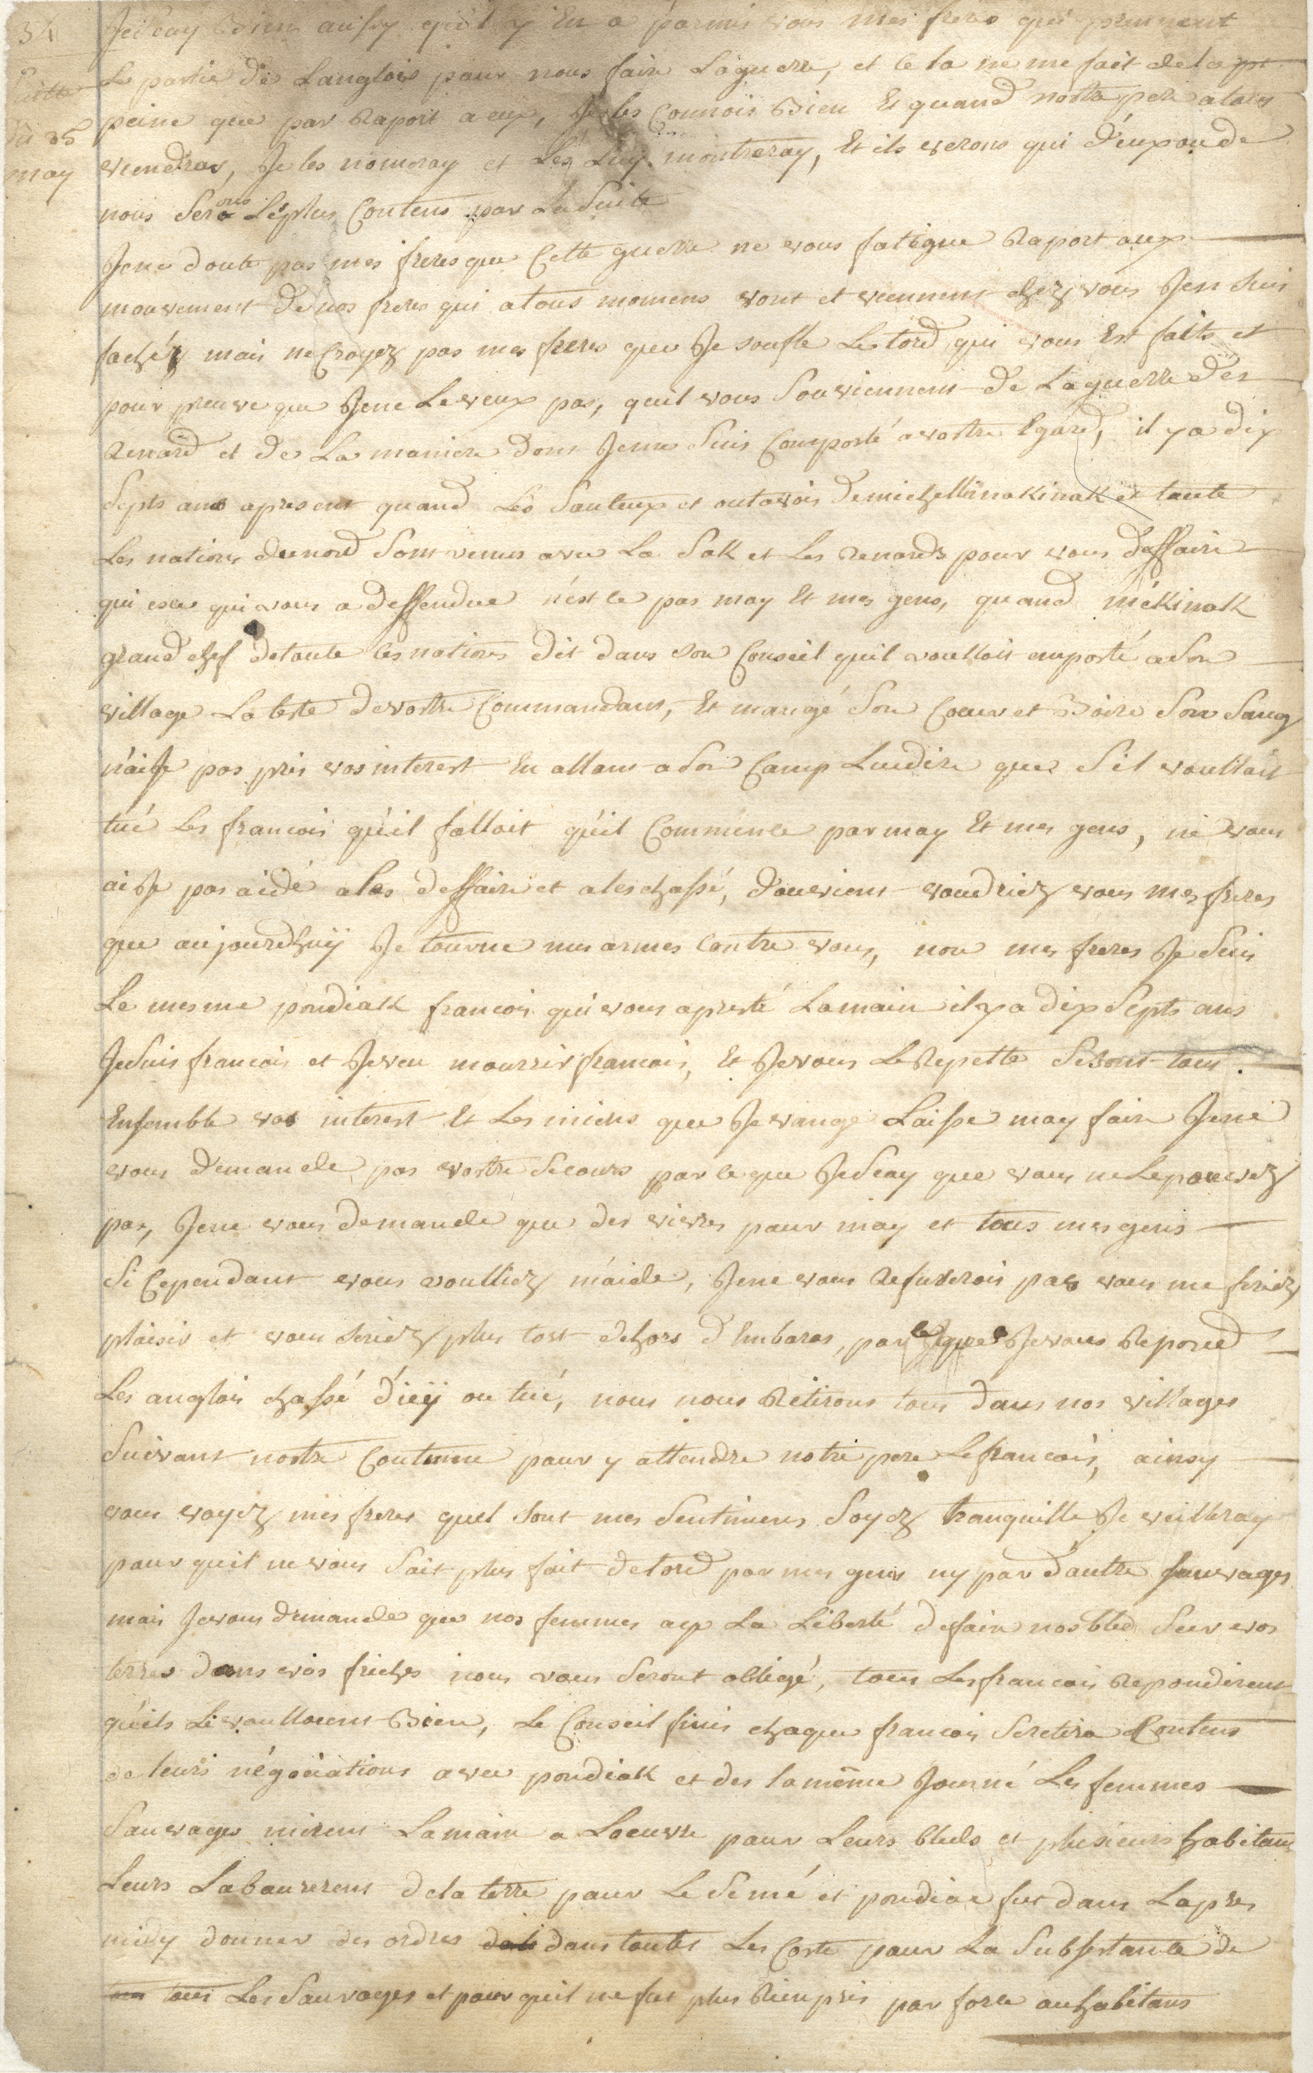 34
Suitte
du 25
may
Je sçay Bien aussy quil y En a parmis vous mes freres qui prennent
Le partie de Langlois pour nous faire Laguerre, et ce la ne me fait de la
peine que par Raport a eux, Je les Connois Bien Et quand nostre pere
viendras, Je les nomeray et Les Luy montreray, Et ils verons qui d'eux ou de
nous Serons Leplus Contens par La Suite
Jene doute pas mes freres que Cette guerre ne vous fatigue Raport aux
mouvement de nos freres qui atous momens vont et viennent chez vous Jen Suis
faché mais ne Croyez pas mes freres que Je soufle Le tord qui vous Est faits et
pour preuve que Jene Leveux pas, quil vous Souviennent de La guerre des
Renard et de La maniere dont Jeme Suis Comporté avostre Egard, il ya dix
Septs ans apresent quand Les Sauteux et outavois demichellimakinak et toute
Les nations dunord Sont venus avec La Sak et Les Renards pour vous deffaire
qui esce qui vous a deffendue n'est ce pas moy Et mes gens, quand mékinak
grand chef detoute les nations dit dans son Conseil quil voulloit emporté a Son
village La teste devostre Commandans, Et mangé Son Coeur et Boire Son Sang
n'aije pas pris vos interest En allant a Son Camp Luidire que S'il voulloit
tué Les francois qu'il falloit qu'il Commence par moy Et mes gens, ne vous
ai Je pas aidé a les deffaire et a les chassé, d'ou vient voudriez vous mes freres
que aujourdhuÿ Je tourne mes armes Contre vous, non mes freres Je Suis
Le mesme pondiak francois qui vous apresté Lamain il y a dix Septs ans
Jesuis francois et Jeveu mourrir francois, Et Jevous Le Repette Sesont tous
Ensemble vos interest Et Les miens que Je vange Laisse moy faire Jene
vous demande pas vostre Secours par ce que Je Scay que vous ne Le pouvez
pas, Jene vous demande que des vivres pour moy et tous mes gens
Si Cependant vous voulliez m'aide, Jene vous Refuserois pas vous me feriez
plaisir et vous seriez plus tost dehors d'Embaras, par ce que Je vous Repond
Les anglois chassé d'icÿ ou tué, nous nous Retirons tous dans nos villages
Suivant nostre Coutume pour y attendre notre pere Lefrancois, ainsy
vous voyez mes freres quel sont mes Sentimens Soyez tranquille Je veilleray
pour quil ne vous Soit plus fait detord par mes gens ny par dautre sauvages
mais Jevous demande que nos femmes aye La Liberté defaire nosbled Sur vos
terres dans vos friches nous vous Seront obligé, tous Lesfrancois Repondirent
qu'ils Levoulloient Bien, Le Conseil finis chaque francois Seretira Contens
de leurs négociations avec pondiak et des la même Journé Les femmes
Sauvages mirent Lamain a Loeuvre pour Leurs bleds et plusieurs habitans
Leurs Labourerent dela terre pour Le Semé et pondiac fut dans Lapres
midy donner des ordres dans toutes Les Coste pour La Subsistance de
tous Les Sauvages et pour quil ne fut plus Rien pris par force au habitans